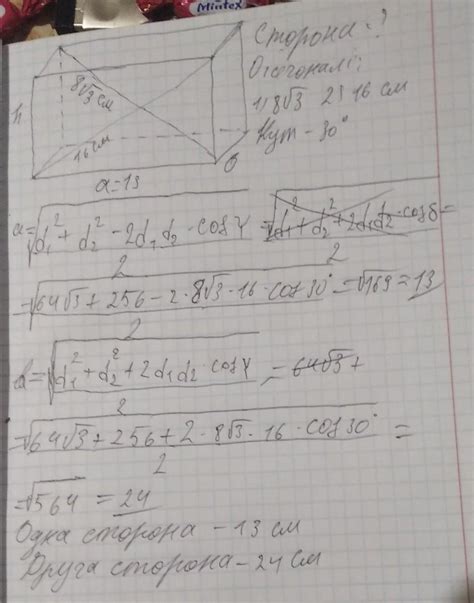 Mintex
Сторона - ?
Діагоналі:
1) 8√3 2) 16 см
Кут - 30°
h
8√3 см
16 см
a=13
a=√d₁² + d₂² - 2d₁ d₂ · cos γ = √d₁² + d₂² + 2d₁d₂ · cos δ =
2 2
=√64√3 + 256 - 2 · 8√3 · 16 · cos 30° = √169 = 13
2
в=√d₁² + d₂² + 2d₁ d₂ · cos γ = 64√3 +
2
=√64√3 + 256 + 2 · 8√3 · 16 · cos 30° =
2
=√564 = 24
Одна сторона - 13 см
Друга сторона - 24 см